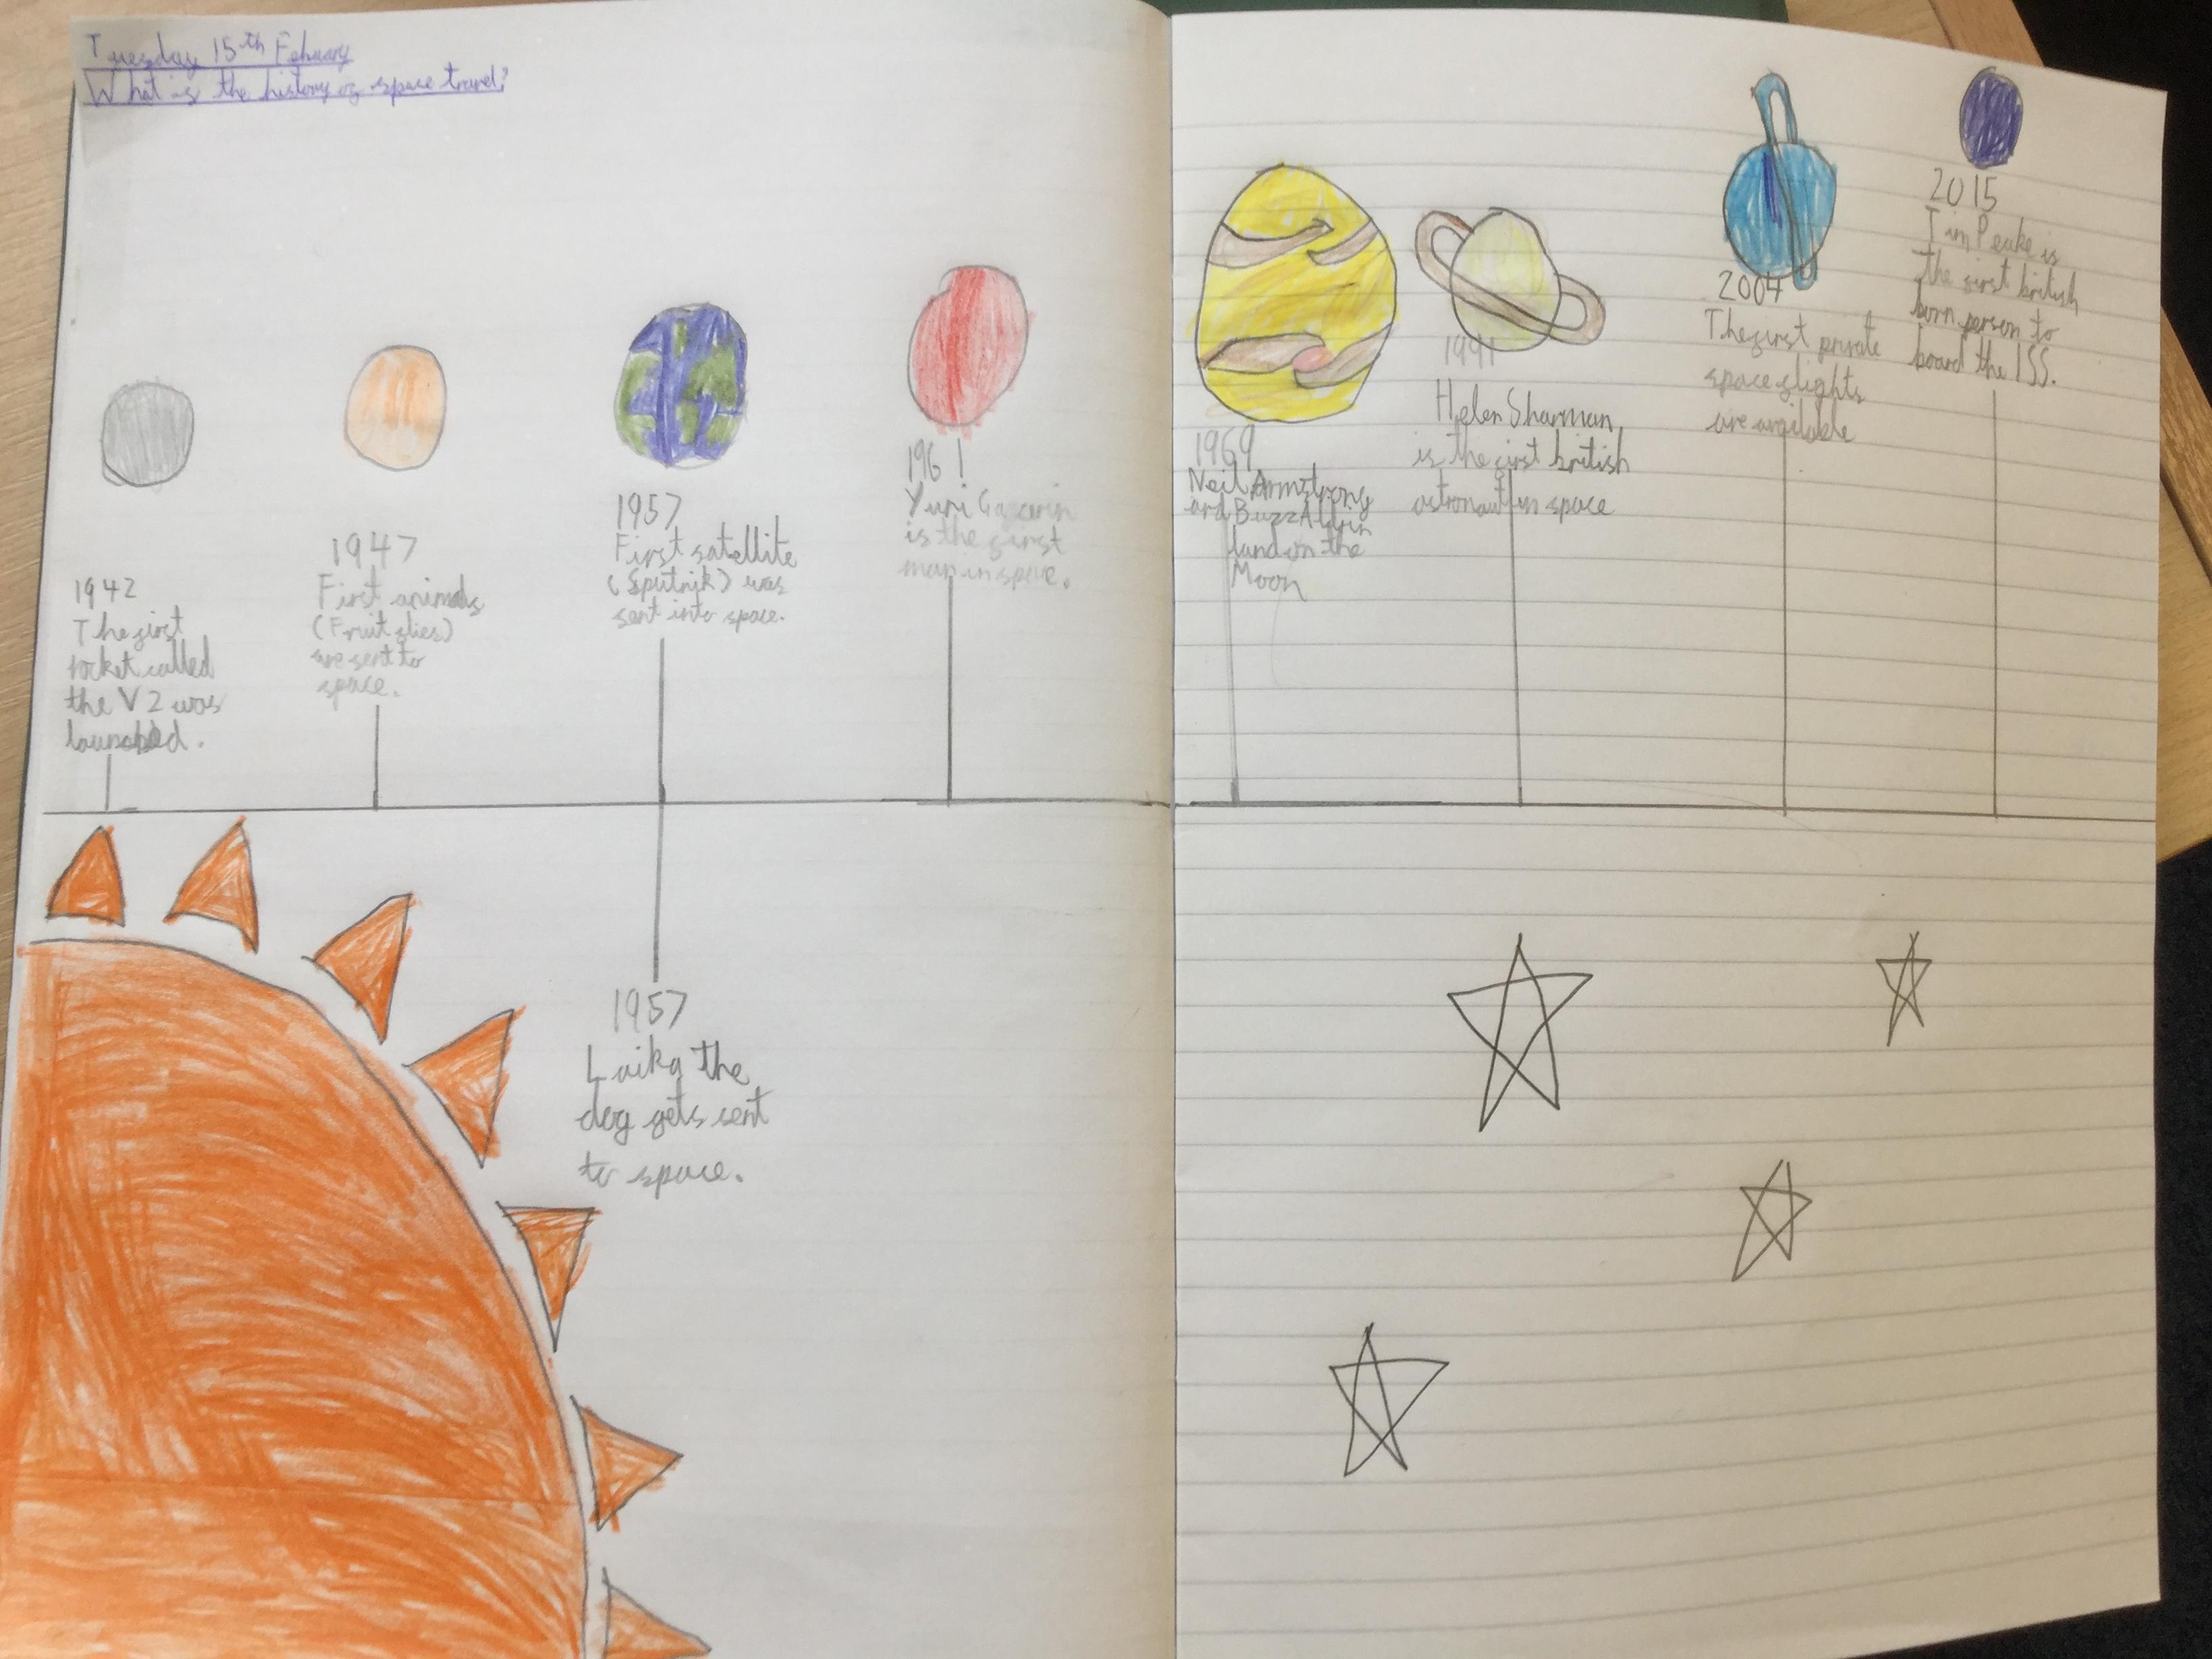 Tuesday 15th Febuary
What is the history of space travel?
1942
The first
rocket called
the V2 was
launched.
1947
First animals
(Fruit flies)
are sent to
space.
1957
First satellite
(Sputnik) was
sent into space.
1957
Laika the
dog gets sent
to space.
1961
Yuri Gagarin
is the first
man in space.
1969
Neil Armstrong
and Buzz Aldrin
land on the
Moon
1991
Helen Sharman
is the first british
astronaut in space
2004
The first private
space flights
are available
2015
Tim Peake is
the first british
born person to
board the ISS.